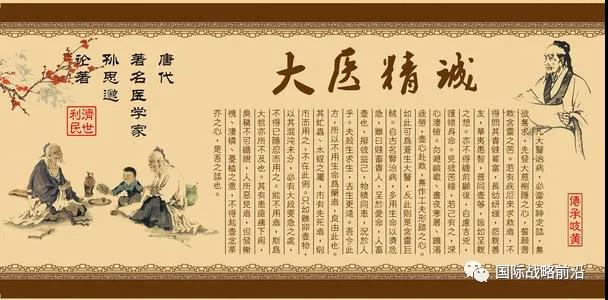 大医精诚
唐代
著名医学家
孙思邈
论著
濟世
利民
凡大醫治病，必當安神定誌，無
欲無求，先發大慈惻隱之心，誓願普
救含靈之苦。若有疾厄來求救者，不
得問其貴賤貧富，長幼妍媸，怨親善
友，華夷愚智，普同壹等，皆如至親
之想。亦不得瞻前顧後，自慮吉兇，
護惜身命。見彼苦惱，若己有之，深
心淒愴。勿避嶮巇、晝夜寒暑、饑渴
疲勞，壹心赴救，無作工夫形跡之心。
如此可爲蒼生大醫，反此則是含靈巨
賊。自古名賢治病，多用生命以濟危
急，雖曰賤畜貴人，至於愛命，人畜
壹也，損彼益己，物情同患，況於人
乎。夫殺生求生，去生更遠。吾今此
方，所以不用生命爲藥者，良由此也。
其虻蟲、水蛭之屬，市有先死者，則
市而用之，不在此例。只如雞卵壹物，
以其混沌未分，必有大段要急之處，
不得已隱忍而用之。能不用者，斯爲
大哲亦所不及也。其有患瘡痍下痢，
臭穢不可瞻視，人所惡見者，但發慚
愧、淒憐、憂恤之意，不得起壹念蒂
芥之心，是吾之誌也。
傳承岐黄
国际战略前沿